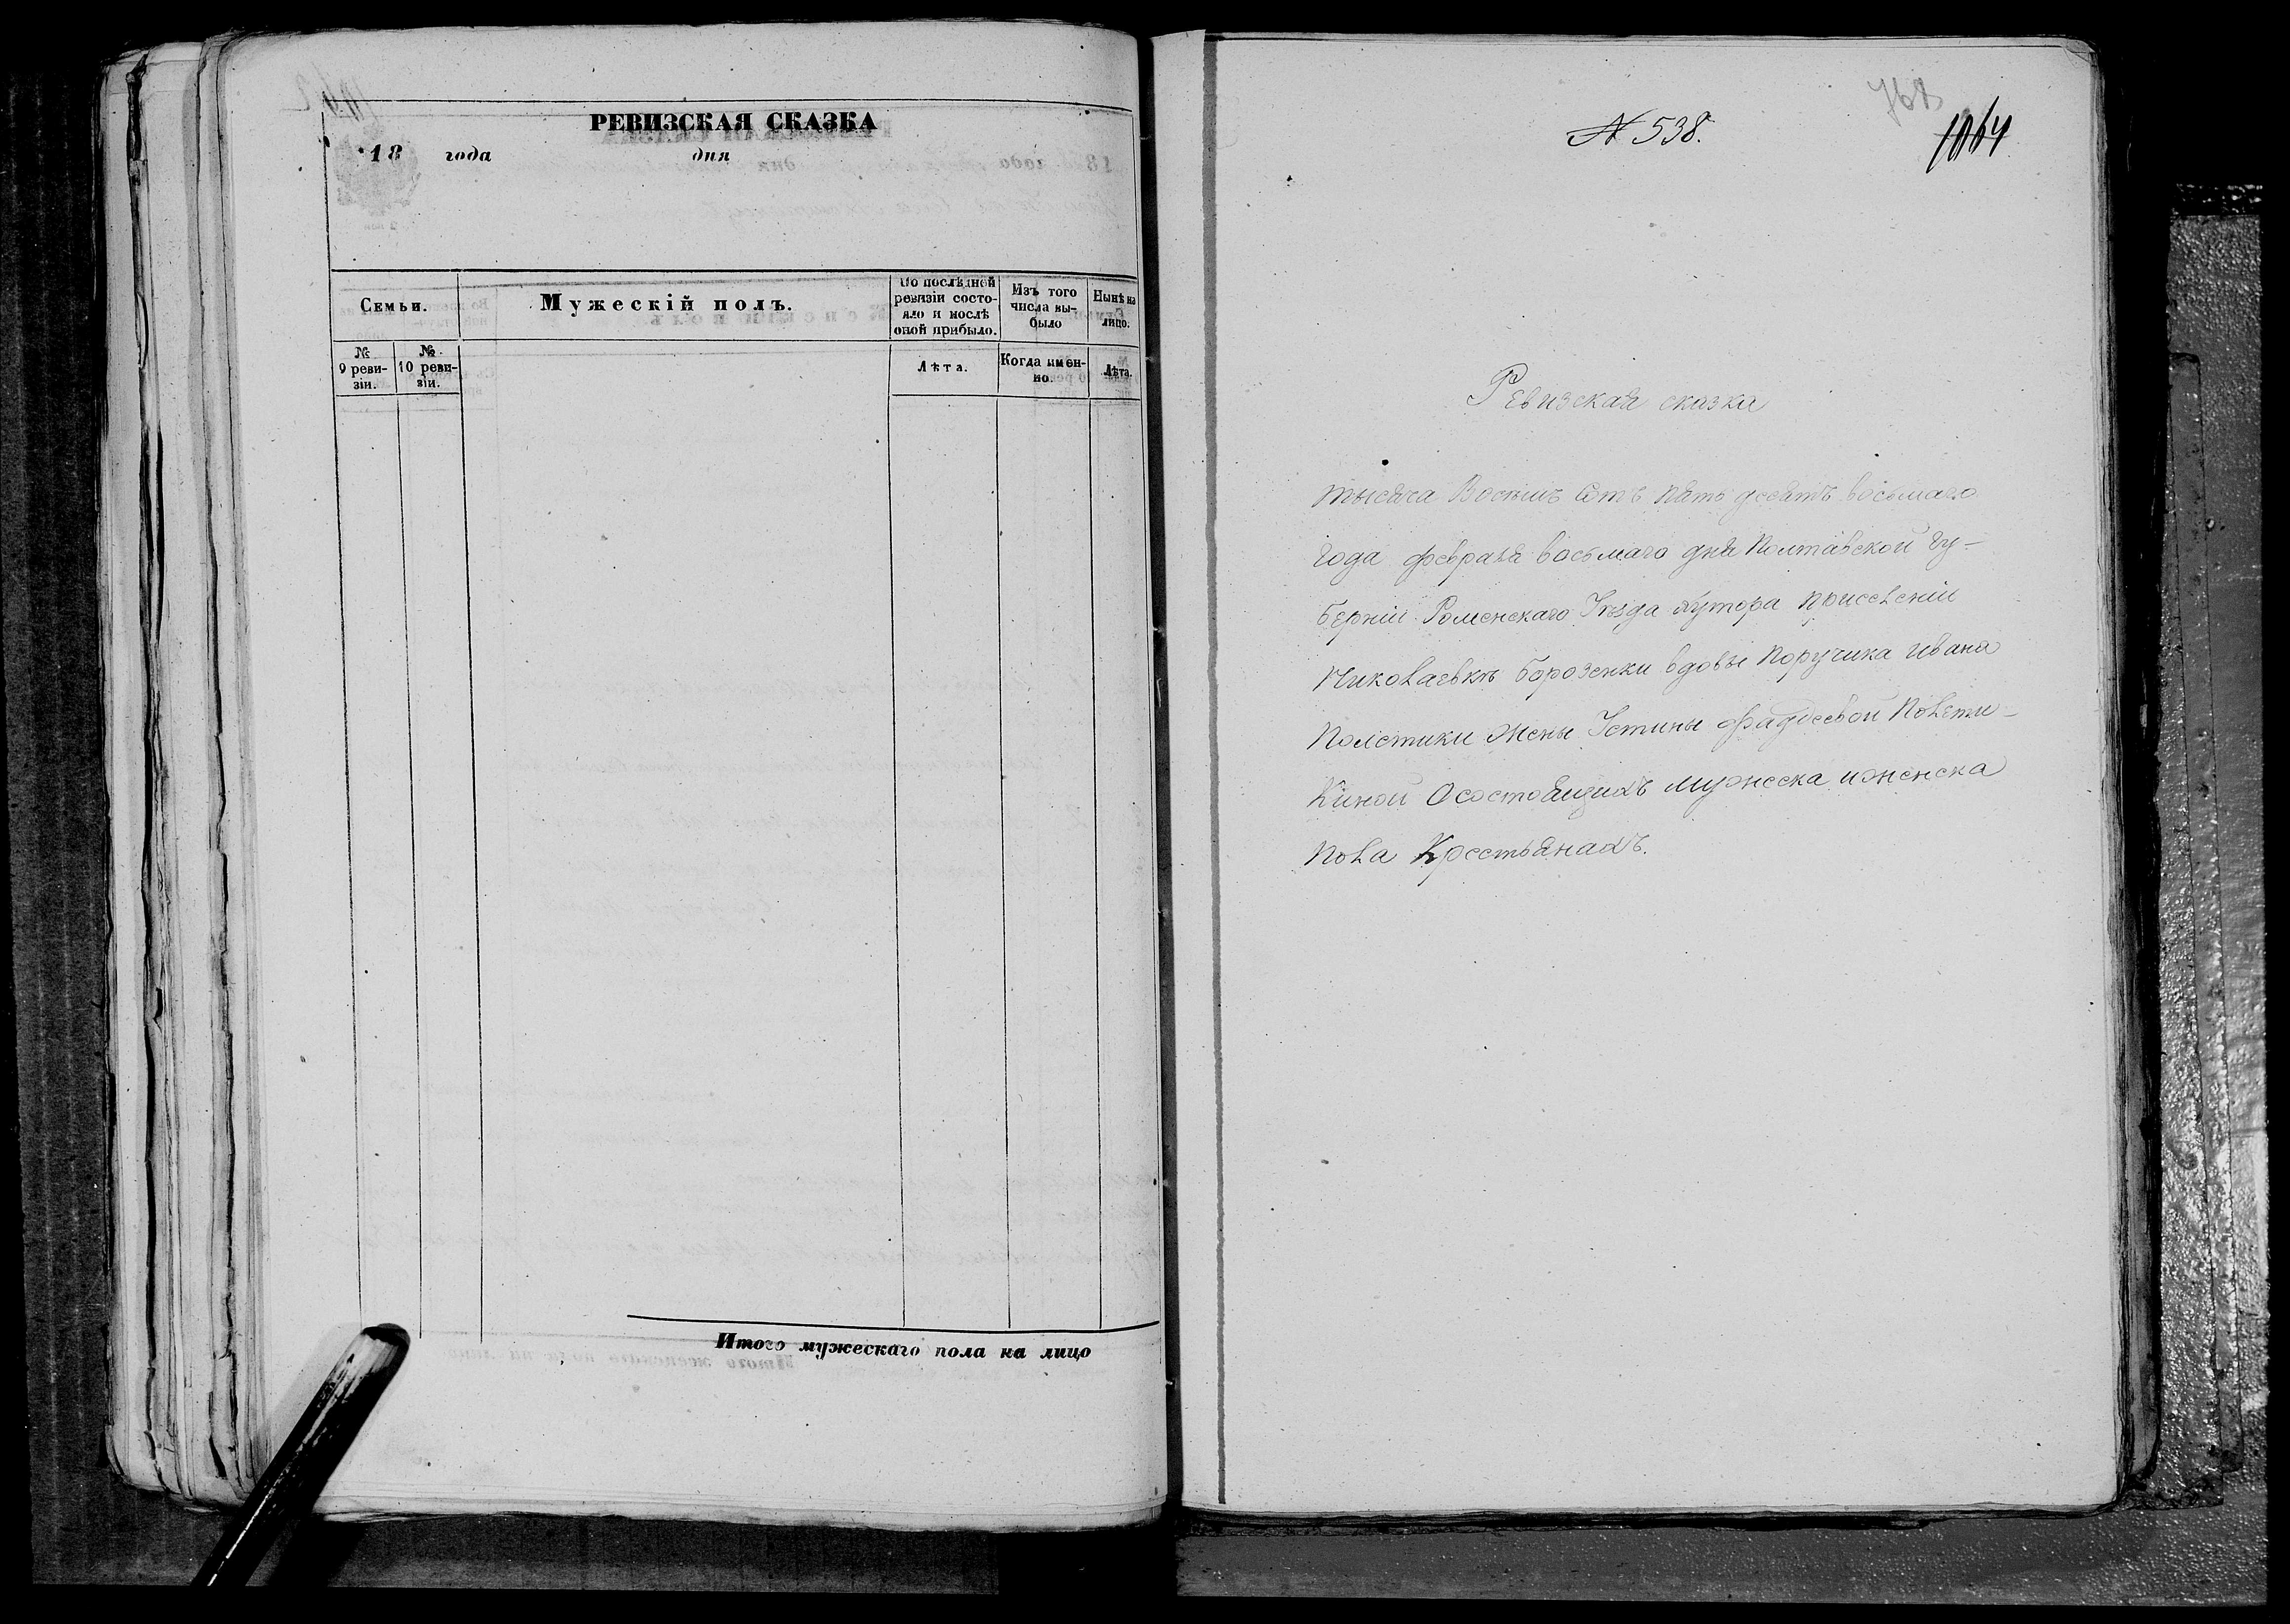 РЕВИЗСКАЯ СКАЗКА
18 года дня
Семьи.
Мужескій полъ.
По послѣдней ревизіи состояло и послѣ оной прибыло.
Изъ того числа выбыло
Нынѣ на лицо.
№ 9 ревизіи.
№ 10 ревизіи.
Лѣта.
Когда именно.
Лѣта.
Итого мужескаго пола на лицо
№ 538.
768
1064
Ревизская сказка
тысяча Восемь Сотъ пять десятъ восьмаго
года февраля восьмаго дня Полтавской гу-
берніи Роменскаго Уезда хутора приселеніи
Николаевкѣ Борозенки вдовы Поручика Ивана
Полетики жены Устины Фадеевой Полети-
киной О состоящихъ мужеска и женска
пола Крестьянахъ.